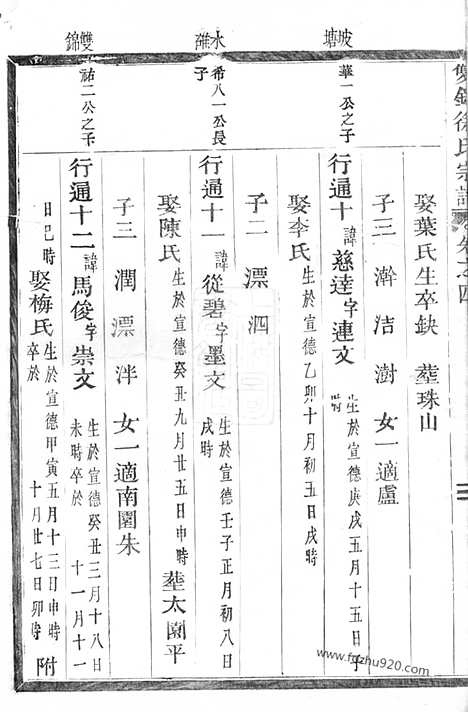 雙錦徐氏宗譜 卷之四
娶葉氏生卒缺 塟珠山
子三 澣 洁 澍 女一適盧
坡塘
華一公之子
行通十諱慈達字連文 生於宣德庚戌五月十五日子時
娶李氏生於宣德乙卯十月初五日戌時
子二 漂 泗
水碓
希八一公長子
行通十一諱從碧字墨文 生於宣德壬子正月初八日戌時
娶陳氏生於宣德癸丑九月廿五日申時 塟太園平
子三 潤 漂 泮 女一適南園朱
雙錦
祐二公之子
行通十二諱馬俊字崇文 生於宣德癸丑三月十八日未時卒於 十一月十一
日巳時 娶梅氏生於宣德甲寅五月十三日申時卒於 十月廿七日卯時 附
www.fgzhu920.com